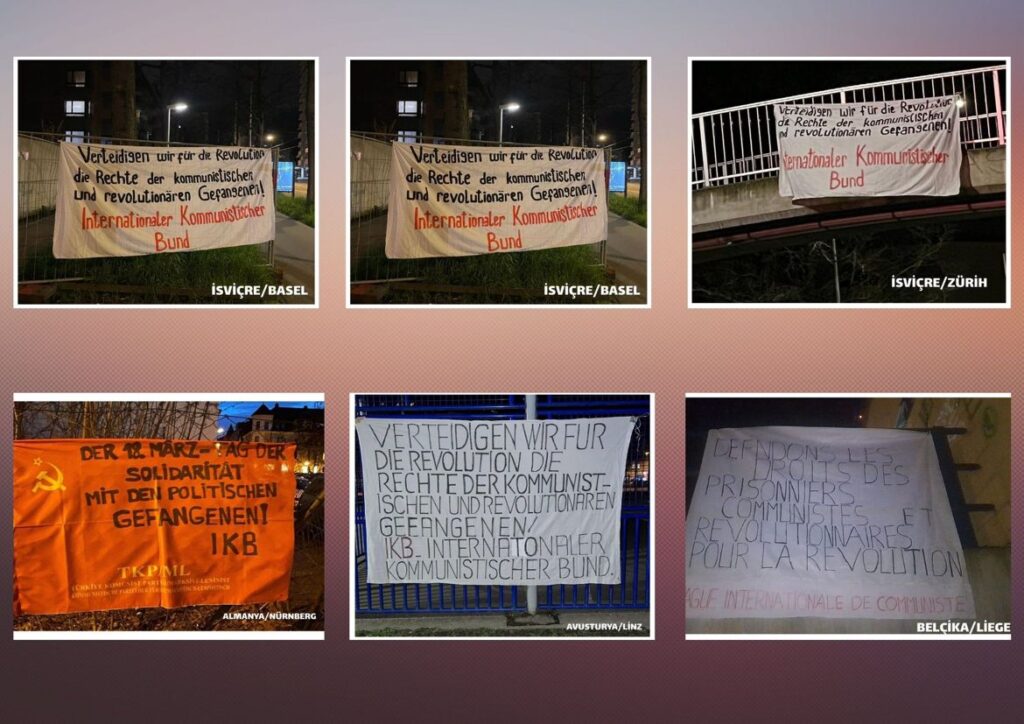 Verteidigen wir für die Revolution
die Rechte der kommunistischen
und revolutionären Gefangenen!
Internationaler Kommunistischer
Bund
İSVİÇRE/BASEL
Verteidigen wir für die Revolution
die Rechte der kommunistischen
und revolutionären Gefangenen!
Internationaler Kommunistischer
Bund
İSVİÇRE/BASEL
Verteidigen wir für die Revolution
die Rechte der kommunistischen
nd revolutionären Gefangenen!
ternationaler Kommunistischer
Bund
İSVİÇRE/ZÜRİH
DER 18. MÄRZ- TAG DER
SOLIDARITÄT
MIT DEN POLITISCHEN
GEFANGENEN!
IKB
TKP/ML
TÜRKİYE KOMÜNİST PARTİSİ/MARKSİST-LENİNİST
ALMANYA/NÜRNBERG
VERTEIDIGEN WIR FÜR
DIE REVOLUTION DIE
RECHTE DER KOMMUNIST-
ISCHEN UND REVOLUTIONÄREN
GEFANGENEN!
IKB-INTERNATIONALER
KOMMUNISTISCHER BUND.
AVUSTURYA/LİNZ
DEFENDONS LES
DROITS DES
PRISONNIERS
COMMUNISTES ET
REVOLUTIONNAIRES
POUR LA REVOLUTION
AGUE INTERNATIONALE DE COMMUNISTE
BELÇİKA/LİEGE